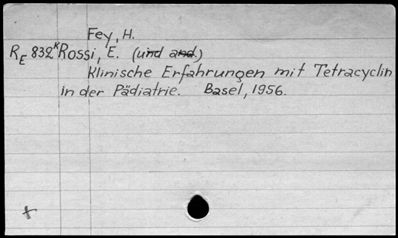 Fey, H.
RE 832k Rossi, E. (und and.)
Klinische Erfahrungen mit Tetracyclin
in der Pädiatrie. Basel, 1956.